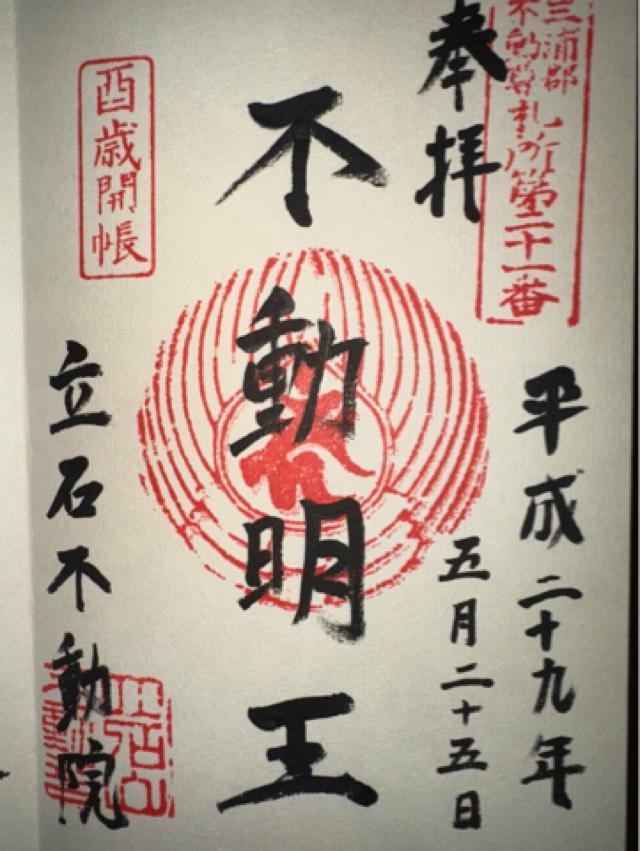 三浦郡
不動尊札所第二十一番
奉拝
平成二十九年
五月二十五日
不動明王
酉歳開帳
立石不動院